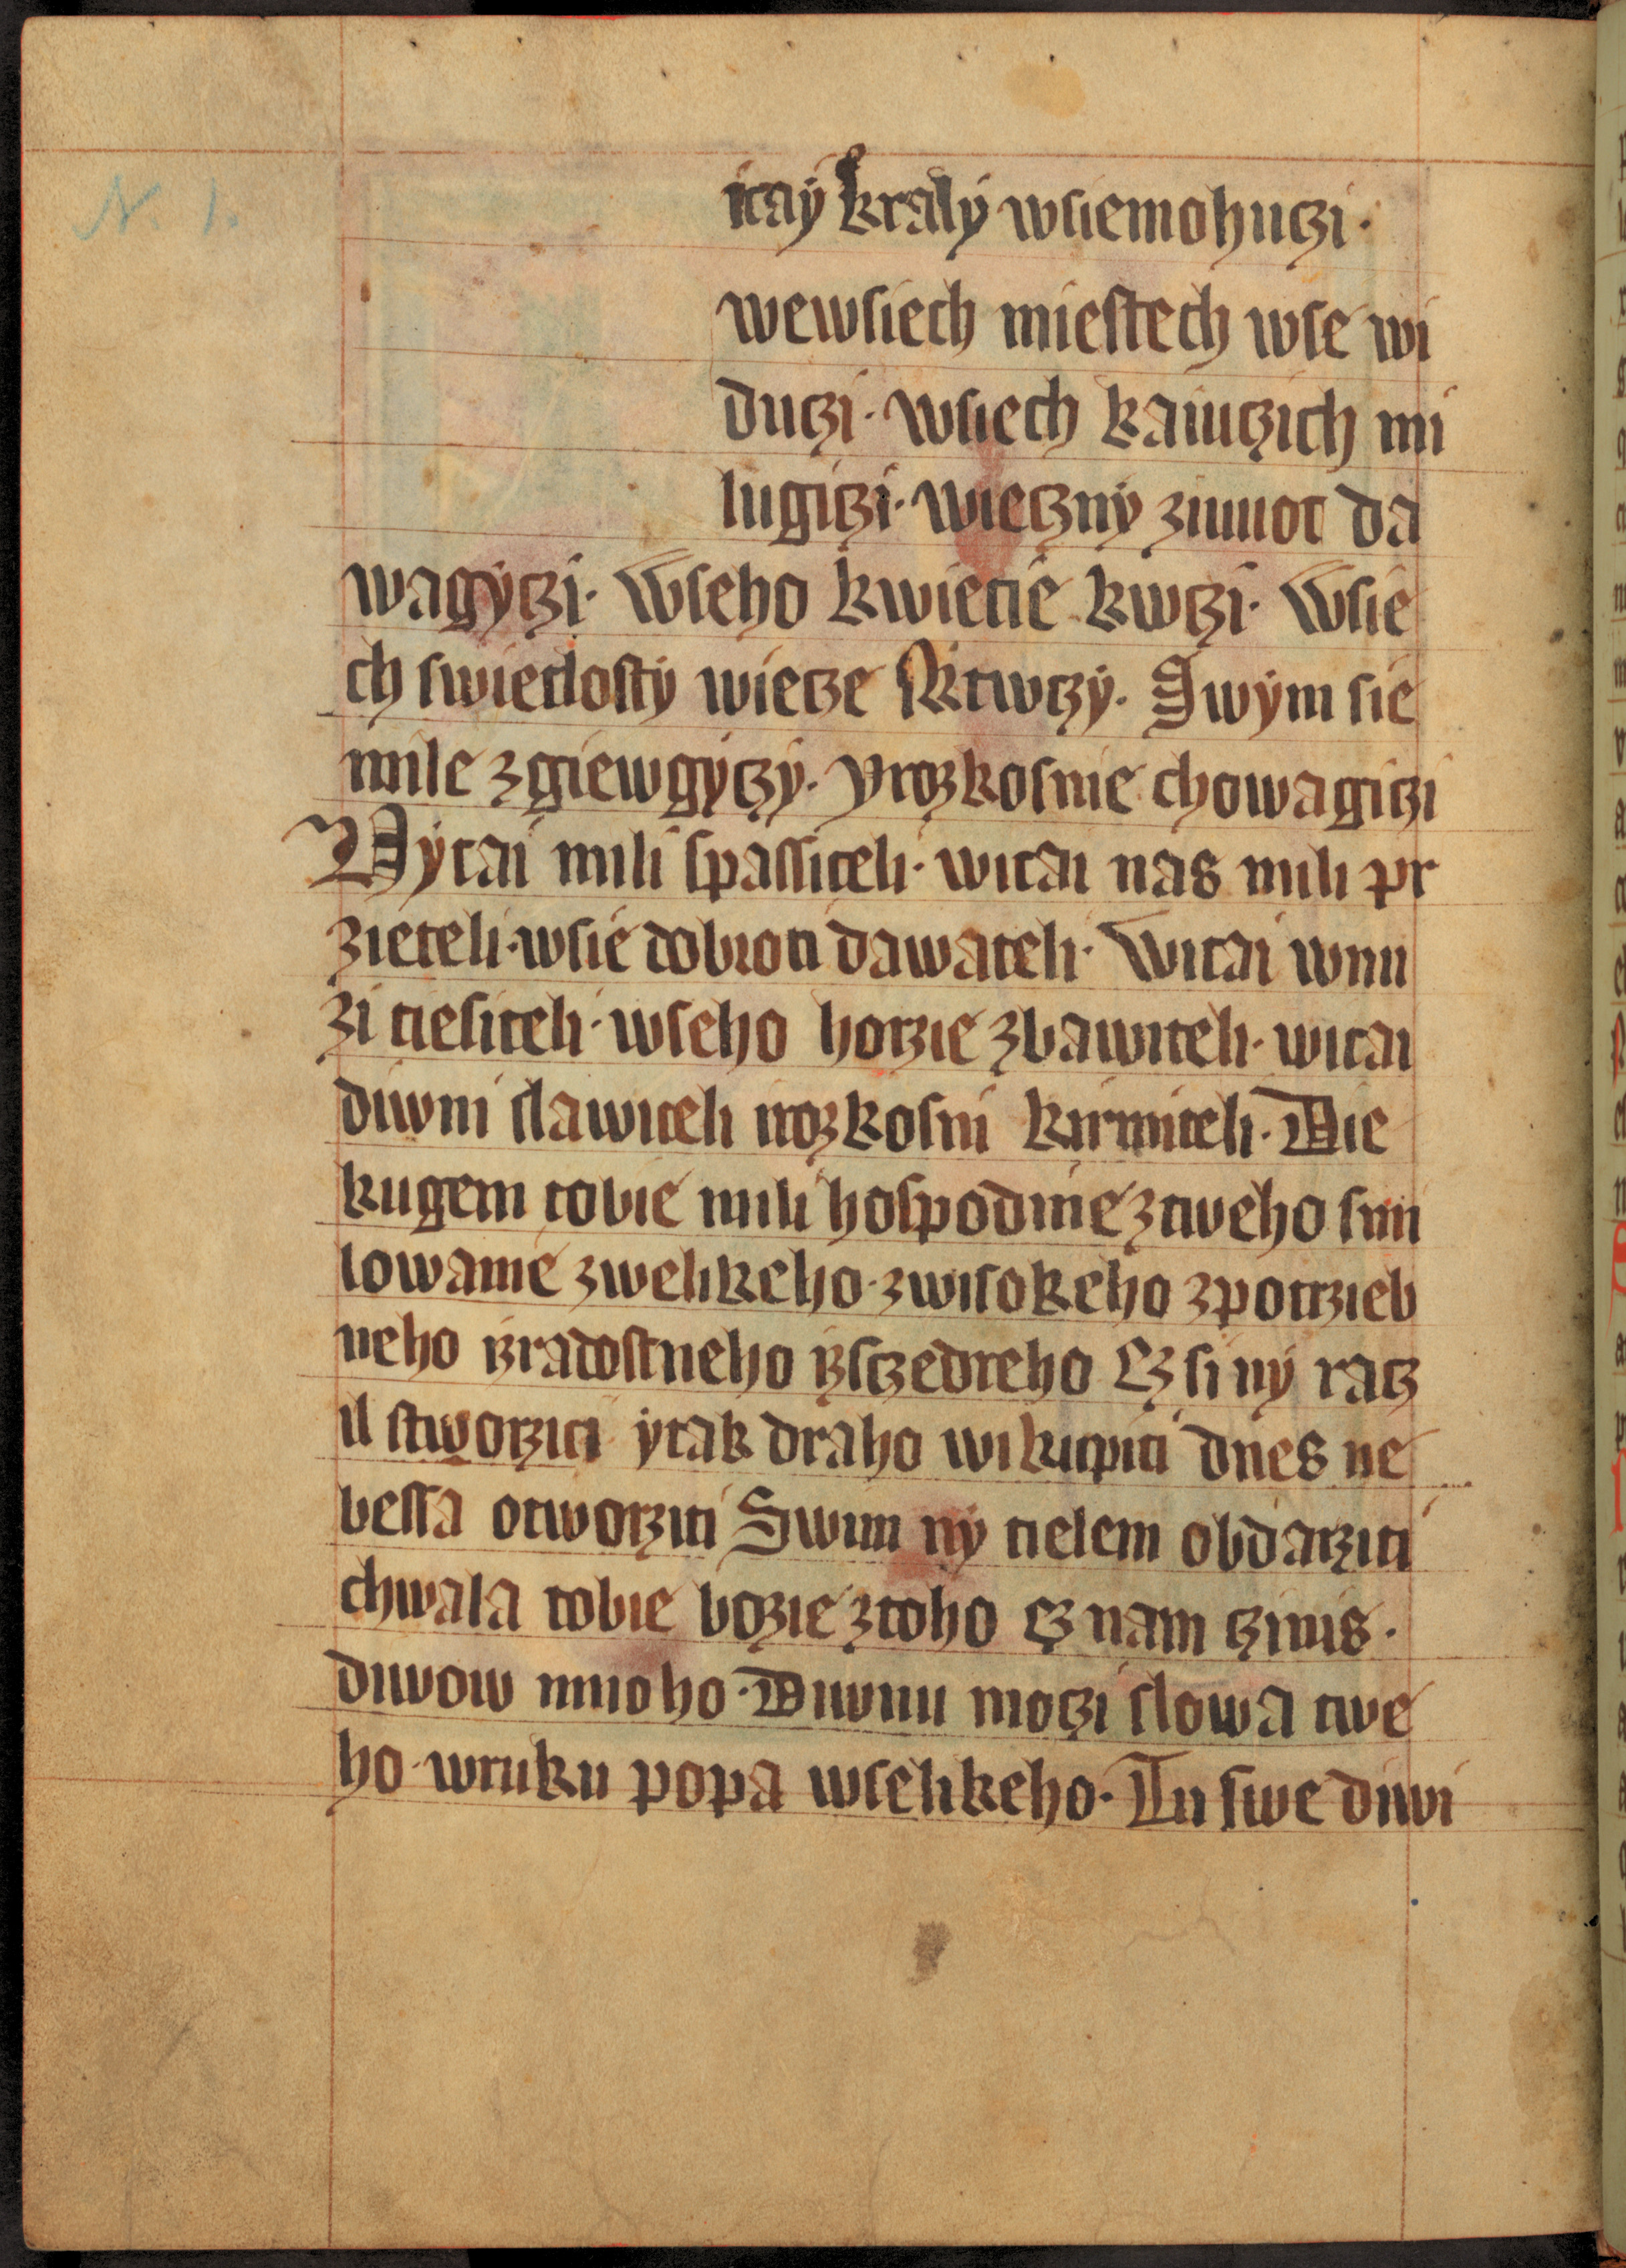 N. 1.
itaẏ kralẏ wſiemohuczi·
wewſiech mieſtech wſe wi
duczi· wſiech kaiuczich mi
lugiczi· wiecznẏ ziuuot da
wagẏczi· Wſeho kwietie kwczi· Wſie
ch ſwietloſtẏ wiecze ſktwczẏ· Swẏm ſie
mile zgiewgẏczẏ· yrozkoſnie chowagiczi
Wẏtai mili ſpaſſiteli· witai nas mili pr
zieteli· wſie dobroti dawateli· Witai wnu
zi tieſiteli· wſeho horzie zbawiteli· witai
diwni ſlawiteli irozkoſni kirmiteli· Die
kugem tobie mili hoſpodine ztweho ſmi
lowanie zwelikeho· zwiſokeho zpotrzieb
neho izradoſtneho izſczedreho Cz ſi nẏ racz
il ſtworziti ẏtak draho wikupiti dnes ne
beſſa otworziti Swim nẏ tielem obdarziti
chwala tobie bozie ztoho cz nam czinis·
diwow mnoho· Diwnu moczi ſlowa twe
ho· wruku popa wſelikeho· Tu ſwe diwi